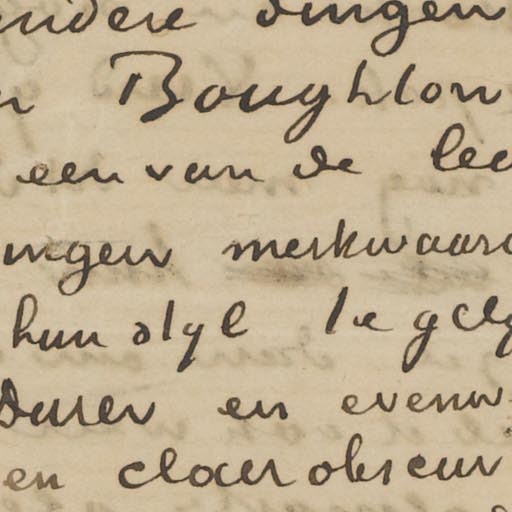 andere dingen
Boughton
een van de
ingen merkwaard
hun styl te gely
Durer en evenw
en claer obscur